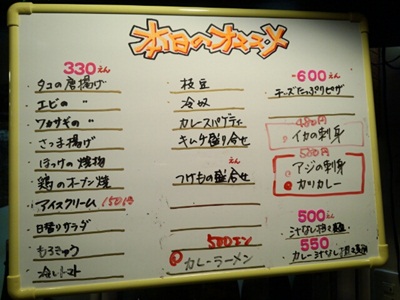 本日のオススメ
330えん
タコの唐揚げ
エビの 〃
ワカサギの 〃
さつま揚げ
ほっけの焼物
鶏のオーブン焼
アイスクリーム 150円
日替りサラダ
もろきゅう
冷しトマト
枝豆
冷奴
カレースパゲティ
キムチ盛り合せ
えん
つけもの盛合せ
500エン
カレーラーメン
600えん
チーズたっぷりピザ
480円
イカの刺身
580円
アジの刺身
カツカレー
500えん
汁なし担々麺
550
カレー汁なし担々麺